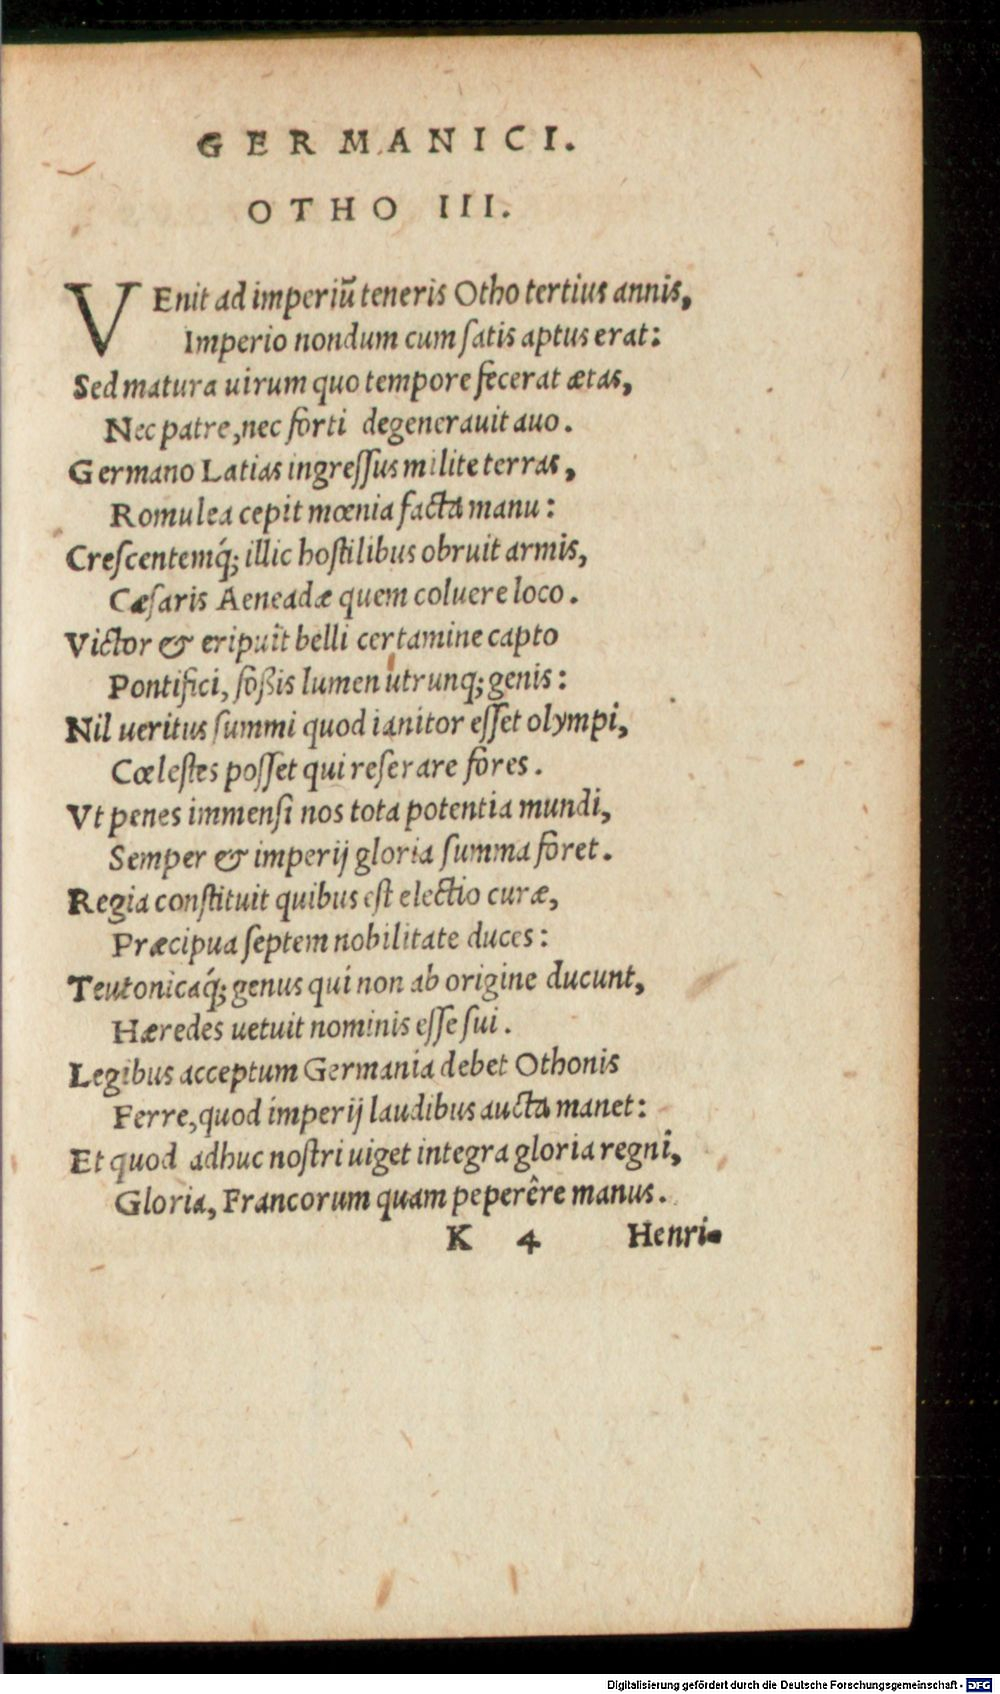 GERMANICI.
OTHO III.
VEnit ad imperiũ teneris Otho tertius annis,
Imperio nondum cum ſatis aptus erat:
Sed matura uirum quo tempore fecerat ætas,
Nec patre, nec forti degenerauit auo.
Germano Latias ingreſſus milite terras,
Romulea cepit mœnia facta manu:
Creſcentemq́; illic hoſtilibus obruit armis,
Cæſaris Aeneadæ quem coluere loco.
Victor & eripuit belli certamine capto
Pontifici, foßis lumen utrunq; genis:
Nil ueritus ſummi quod ianitor eſſet olympi,
Cœleſtes poſſet qui reſerare fores.
Vt penes immenſi nos tota potentia mundi,
Semper & imperij gloria ſumma foret.
Regia conſtituit quibus eſt electio curæ,
Præcipua ſeptem nobilitate duces:
Teutonicaq́; genus qui non ab origine ducunt,
Hæredes uetuit nominis eſſe ſui.
Legibus acceptum Germania debet Othonis
Ferre, quod imperij laudibus aucta manet:
Et quod adhuc noſtri uiget integra gloria regni,
Gloria, Francorum quam peperêre manus.
K 4 Henri-
Digitalisierung gefördert durch die Deutsche Forschungsgemeinschaft - DFG